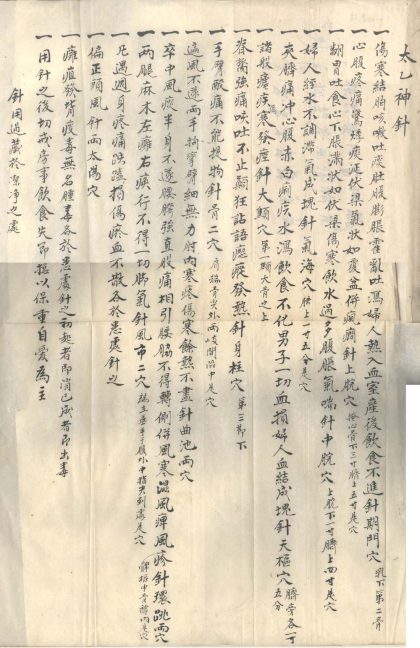 太乙神針
一傷寒結胸咳嗽吐痰肚腹膨脹霍亂吐瀉婦人熱入血室產後飲食不進針期門穴 乳下第二骨
一心腹疼痛驚悸痰涎伏梁氣狀如覆盆併瘋癇針上脘穴 按心骨下三寸臍上五寸是穴
一翻胃吐食心下脹滿狀如伏梁傷寒飲水過多腹脹氣喘針中脘穴 上脘下一寸臍上四寸是穴
一婦人經水不調滯氣成塊針氣海穴 臍下一寸五分是穴
一夾臍痛冲心腹赤白痢疾水瀉飲食不化男子一切血損婦人血結成塊針天樞穴 臍旁各一寸五分
一諸般瘧疾寒發痙針大顀穴 第一顀大骨之上
一脊膂強痛嘔吐不止癲狂詀語瘛瘲發熱針身柱穴 第三節下
一手臂酸痛不能提物針肩二穴 肩稍骨尖外兩岐間陷中是穴
一遍風不遂兩手拘攣臂細無力肘內寒疼傷寒餘熱不盡針曲池兩穴
一卒中風痰半身不遂腰胯強直股痛相引腰脇不得轉側併風寒濕風痺風疹針環跳兩穴 髀樞中骨縫內是穴
一兩腿麻木左癱右瘓行不得一切脚氣針風市二穴 端立垂手于股外中指尖到處是穴
一凡遇週身疼痛跌蹼損傷瘀血不散各於患處針之
一偏正頭風針兩太陽穴
一癰疽發背疫毒無名腫毒各於患處針之初起者即消已成者即出毒
一用針之後切戒房事飲食失節搵以保重自愛為主
針用過藏於潔净之處